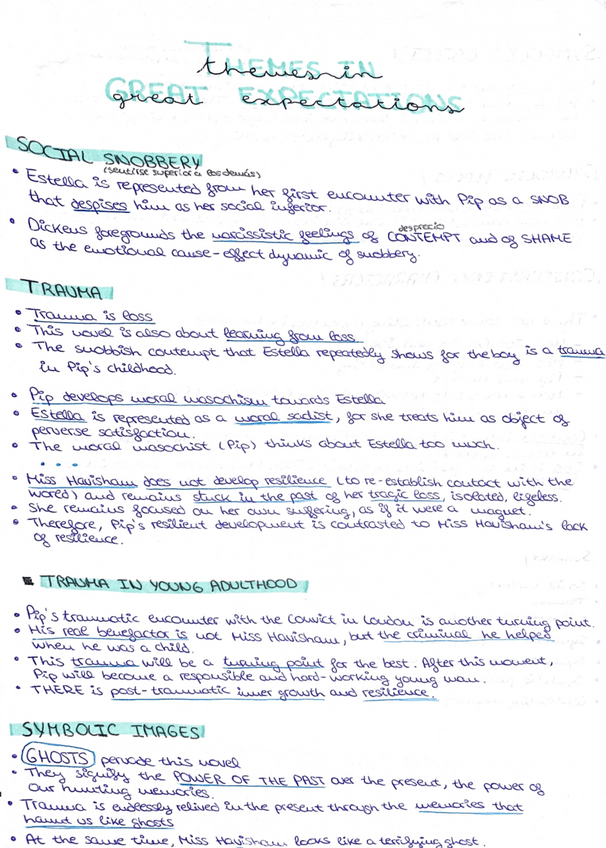 THEMES IN
themes in
GREAT EXPECTATIONS
great expectations
SOCIAL SNOBBERY
(sentirse superior a los demás)
• Estella is represented from her first encounter with Pip as a SNOB
that despises him as her social inferior.
desprecio
• Dickens foregrounds the narcissistic feelings of CONTEMPT and of SHAME
as the emotional cause-effect dynamic of snobbery.
TRAUMA
• Trauma is loss
• This novel is also about learning from loss
• The snobbish contempt that Estella repeatedly shows for the boy is a trauma
in Pip's childhood.
• Pip develops moral masochism towards Estella
• Estella is represented as a moral sadist, for she treats him as object of
perverse satisfaction.
• The moral masochist (Pip) thinks about Estella too much.
• • •
• Miss Havisham does not develop resilience (to re-establish contact with the
world) and remains stuck in the past of her tragic loss, isolated, lifeless.
• She remains focused on her own suffering, as if it were a magnet.
• Therefore, Pip's resilient development is contrasted to Miss Havisham's lack
of resilience.
TRAUMA IN YOUNG ADULTHOOD
• Pip's traumatic encounter with the convict in London is another turning point.
• His real benefactor is not Miss Havisham, but the criminal he helped
when he was a child.
• This trauma will be a turning point for the best. After this moment,
Pip will become a responsible and hard-working young man.
• THERE is post-traumatic inner growth and resilience.
SYMBOLIC IMAGES
• GHOSTS pervade this novel
• They signify the POWER OF THE PAST over the present, the power of
our hunting memories.
• Trauma is endlessly relived in the present through the memories that
haunt us like ghosts
• At the same time, Miss Havisham looks like a terrifying ghost.